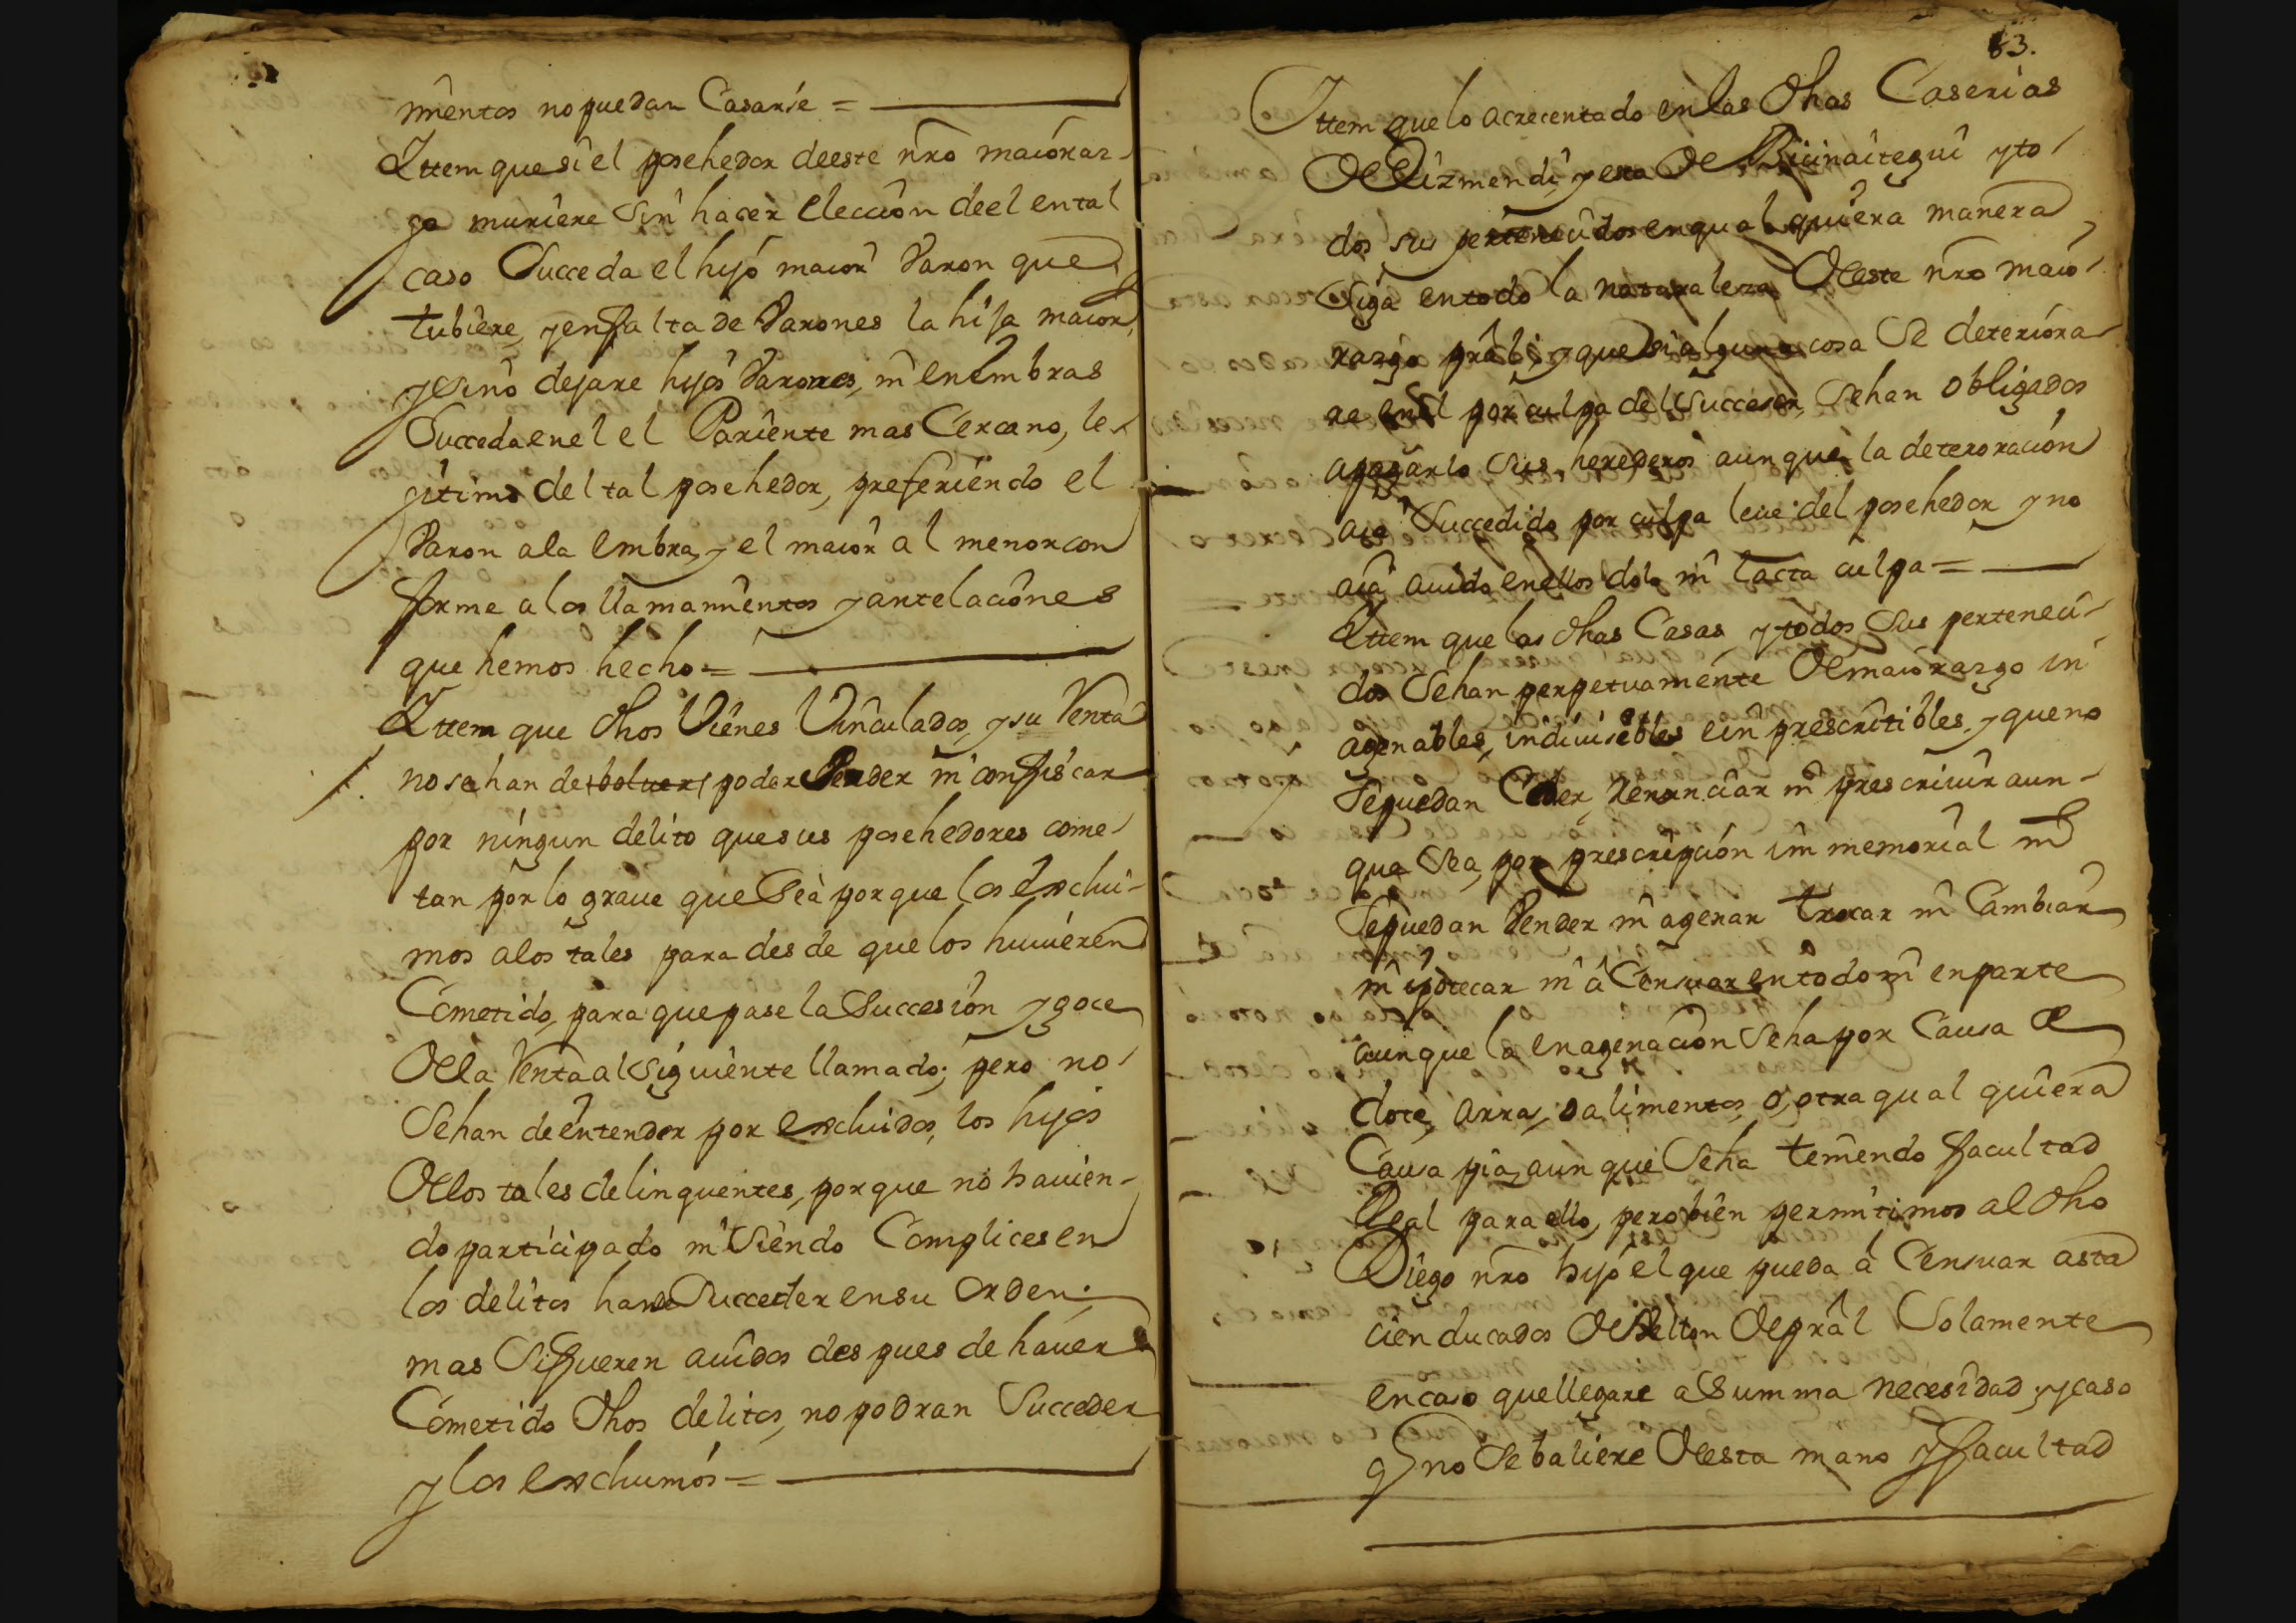 mientos no puedan Casarse =
Ittem que si el posehedor deeste nro maioraz-
go muriere sin hacer eleccion deel ental
caso Succeda el hijo maior Varon que
tubiere, y enfalta de Varones la hija maior,
y sino dejare hijos Varones, ni enembras
Succeda enel el Pariente mas Cercano, le-
jitimo del tal posehedor, prefiriendo el
Varon ala embra, y el maior al menor con
forme a los llamamientos y antelaciones
que hemos hecho =
Ittem que dhos Vienes Vinculados, y su Renta
no se han de bolver, poder Vender ni confiscar
por ningun delito que sus posehedores come-
tan por lo graue que Sea porque los exclui-
mos a los tales para desde que los huuieren
Cometido, para que pase la Succesion y goce
de la Renta al siguiente llamado; pero no
Sehan de entender por excluidos, los hijos
de los tales delinquentes, porque no hauien-
do participado ni Siendo Complices en
los delitos hande Succeder ensu orden.
mas Sifueren auidos despues de hauer
Cometido dhos delitos, no podran Succeder
y los excluimos =
83.
Ittem que lo acrecentado en las dhas Caserias
de Eizmendi, y esta de Bicinaitegui y to-
dos sus pertenecidos en qual quiera manera
Siga entodo la naturaleza deeste nro maio-
razgo pral, y que si alguna cosa Se deteriora-
re en el por culpa del Succesor, Sehan obligados
apagarlo sus herederos aunque la deteroracion
aia Succedido por culpa leue del posehedor y no
aia auido enellos dolo ni lacta culpa =
Ittem que las dhas Casas, y todos Sus perteneci-
dos Sehan perpetuamente de maiorazgo in
agenables, indiuisibles e in prescritibles, y que no
Sepuedan Ceder, Renunciar ni prescriuir aun-
que Sea, por prescripcion im memorial ni
Sepuedan Vender ni agenar trocar ni Cambiar
ni ipotecar ni a Censuar entodo ni enparte
aunque la enagenacion Seha por Causa de
dote, arra, o alimentos, o, otra qual quiera
Causa pia, aun que Seha teniendo facultad
Real para ello, pero bien permitimos al dho
Diego nro hijo el que pueda a Censuar asta
cien ducados de Vellon de pral Solamente
encaso que llegare a Summa necesidad, y caso
q no Se baliere desta mano y facultad